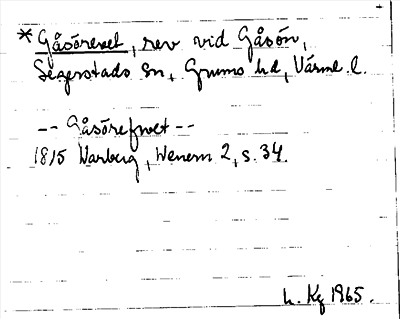 * Gåsörevet, rev vid Gåsön,
Segerstads sn, Grums hd, Värml. l.
-- Gåsörefwet --
1815 Warberg, Wenern 2, s. 34.
h. Kg 1965.